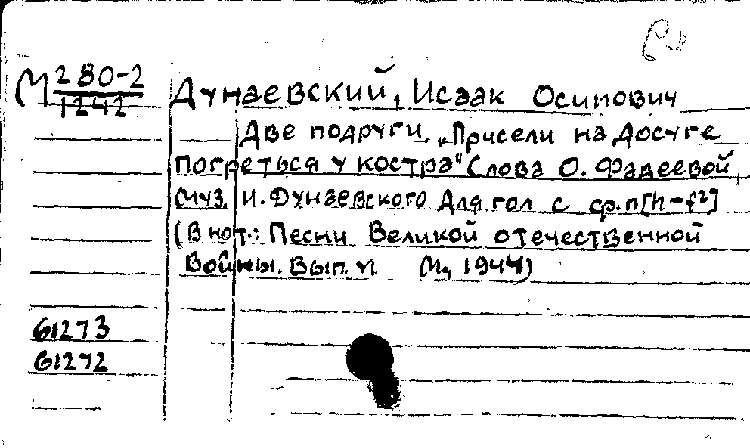 М 280-2
1242
Дунаевский, Исаак Осипович
Две подруги. „Присели на досуге
погреться у костра" Слова О. Фадеевой,
муз. И. Дунаевского Для гол с ф.п [h-f²]
(В нот.: Песни Великой отечественной
войны. Вып. VI (М, 1944)
61273
61272